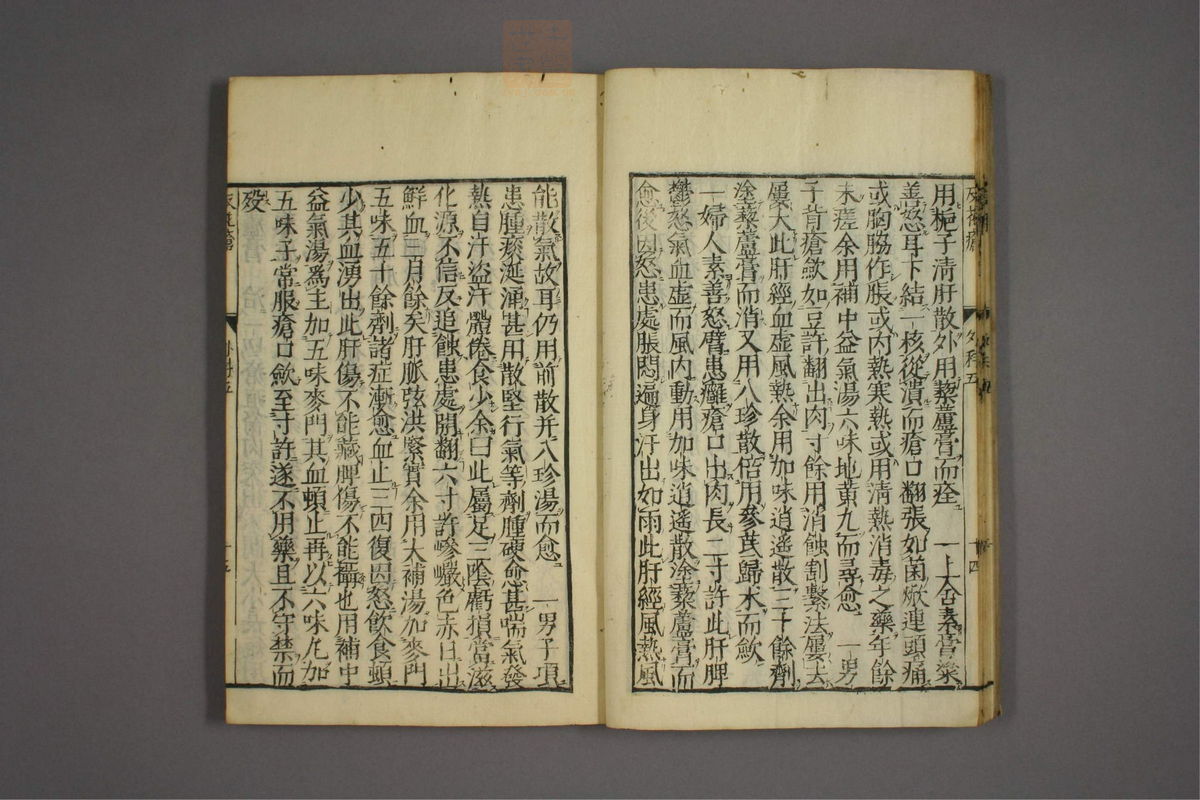 用梔子清肝散外用藜蘆膏而痊　一上舍素膏粱
善怒耳下結一核從潰而瘡口翻張如菌焮連頭痛
或胸脇作脹或內熱寒熱或用清熱消毒之藥年餘
未瘥余用補中益氣湯六味地黃丸而尋愈　一男
子背瘡斂如豆許翻出肉寸餘用消蝕割繫法屢去
屢大此肝經血虛風熱余用加味逍遙散三十餘劑
塗藜蘆膏而消又用八珍散倍用參芪歸朮而斂
一婦人素善怒臂患癰瘡口出肉長二寸許此肝脾
鬱怒氣血虛而風內動用加味逍遙散塗藜蘆膏而
愈後因怒患處脹悶遍身汗出如雨此肝經風熱風
能散氣故耳仍用前散并八珍湯而愈　一男子項
患腫痰涎湧甚用散堅行氣等劑腫硬愈甚喘氣發
熱自汗盜汗體倦食少余曰此屬足三陰虧損當滋
化源不信反追蝕患處開翻六寸許巉巗色赤日出
鮮血三月餘矣肝脈弦洪緊實余用大補湯加麥門
五味五十餘劑諸症漸愈血止三四復因怒飲食頓
少其血湧出此肝傷不能藏脾傷不能攝也用補中
益氣湯爲主加五味麥門其血頓止再以六味丸加
五味子常服瘡口斂至寸許遂不用藥且不守禁而
歿
外科五
十五
外科五
十四